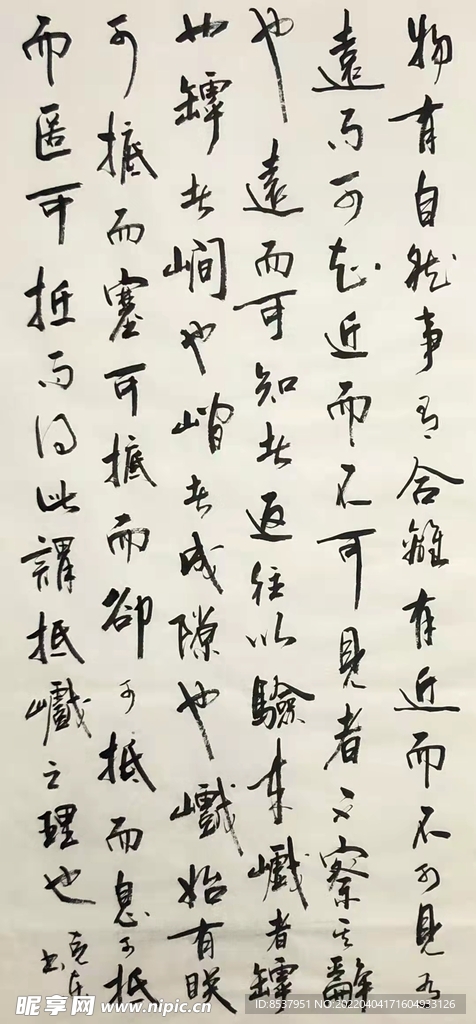 物有自然事有合離有近而不可見有
遠而可知近而不可見者不察其辭
也遠而可知者返往以驗來巇者罅
也罅者也者成隙也巇始有朕
可抵而塞可抵而卻可抵而息可抵
而匿可抵而得此謂抵巇之理也
書
昵享网 www.nipic.cn
ID:8537951 NO:20220404171604933126